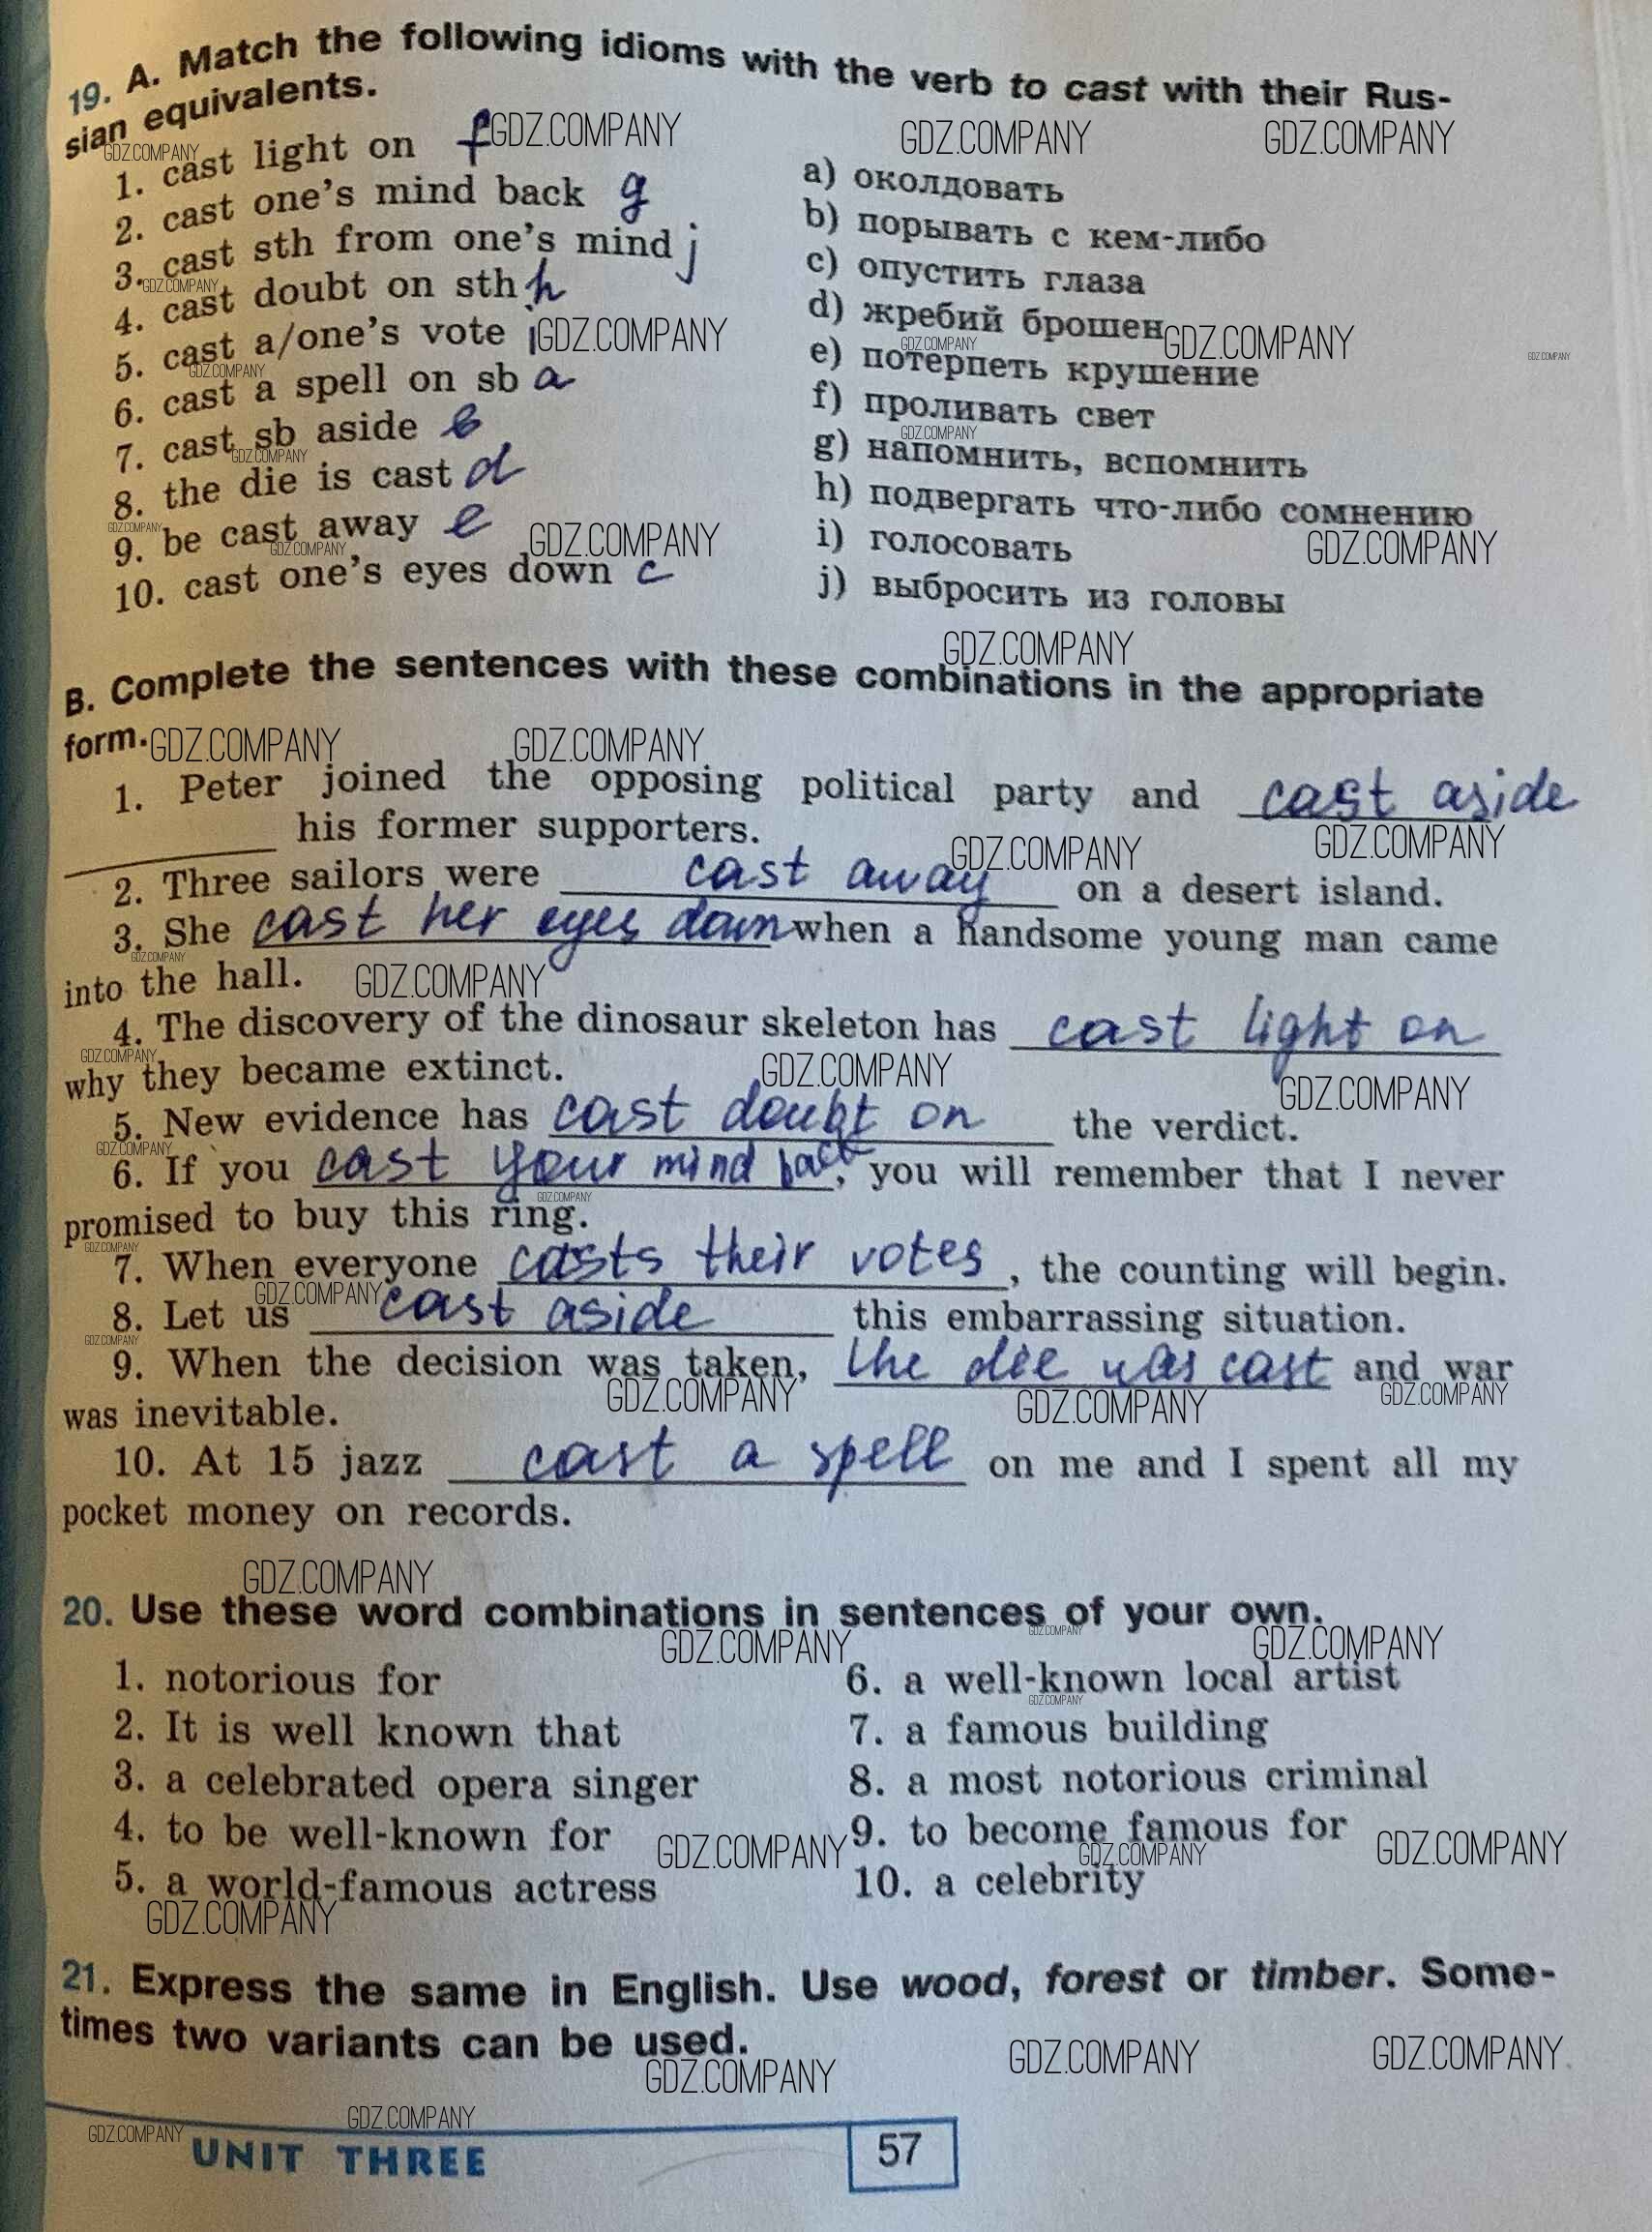 19. A. Match the following idioms with the verb to cast with their Rus-
sian equivalents.
1. cast light on f
2. cast one's mind back g
3. cast sth from one's mind j
4. cast doubt on sth h
5. cast a/one's vote i
6. cast a spell on sb a
7. cast sb aside b
8. the die is cast d
9. be cast away e
10. cast one's eyes down c
a) околдовать
b) порывать с кем-либо
c) опустить глаза
d) жребий брошен
e) потерпеть крушение
f) проливать свет
g) напомнить, вспомнить
h) подвергать что-либо сомнению
i) голосовать
j) выбросить из головы
B. Complete the sentences with these combinations in the appropriate
form.
1. Peter joined the opposing political party and cast aside
his former supporters.
2. Three sailors were cast away on a desert island.
3. She cast her eyes down when a handsome young man came
into the hall.
4. The discovery of the dinosaur skeleton has cast light on
why they became extinct.
5. New evidence has cast doubt on the verdict.
6. If you cast your mind back, you will remember that I never
promised to buy this ring.
7. When everyone casts their votes, the counting will begin.
8. Let us cast aside this embarrassing situation.
9. When the decision was taken, the die was cast and war
was inevitable.
10. At 15 jazz cast a spell on me and I spent all my
pocket money on records.
20. Use these word combinations in sentences of your own.
1. notorious for
2. It is well known that
3. a celebrated opera singer
4. to be well-known for
5. a world-famous actress
6. a well-known local artist
7. a famous building
8. a most notorious criminal
9. to become famous for
10. a celebrity
21. Express the same in English. Use wood, forest or timber. Some-
times two variants can be used.
UNIT THREE
57
GDZ.COMPANY